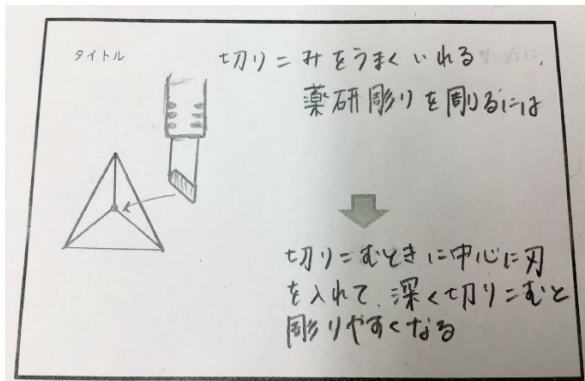 タイトル
切りこみをうまくいれる
薬研彫りを彫るには
切りこむときに中心に刃
を入れて、深く切りこむと
彫りやすくなる